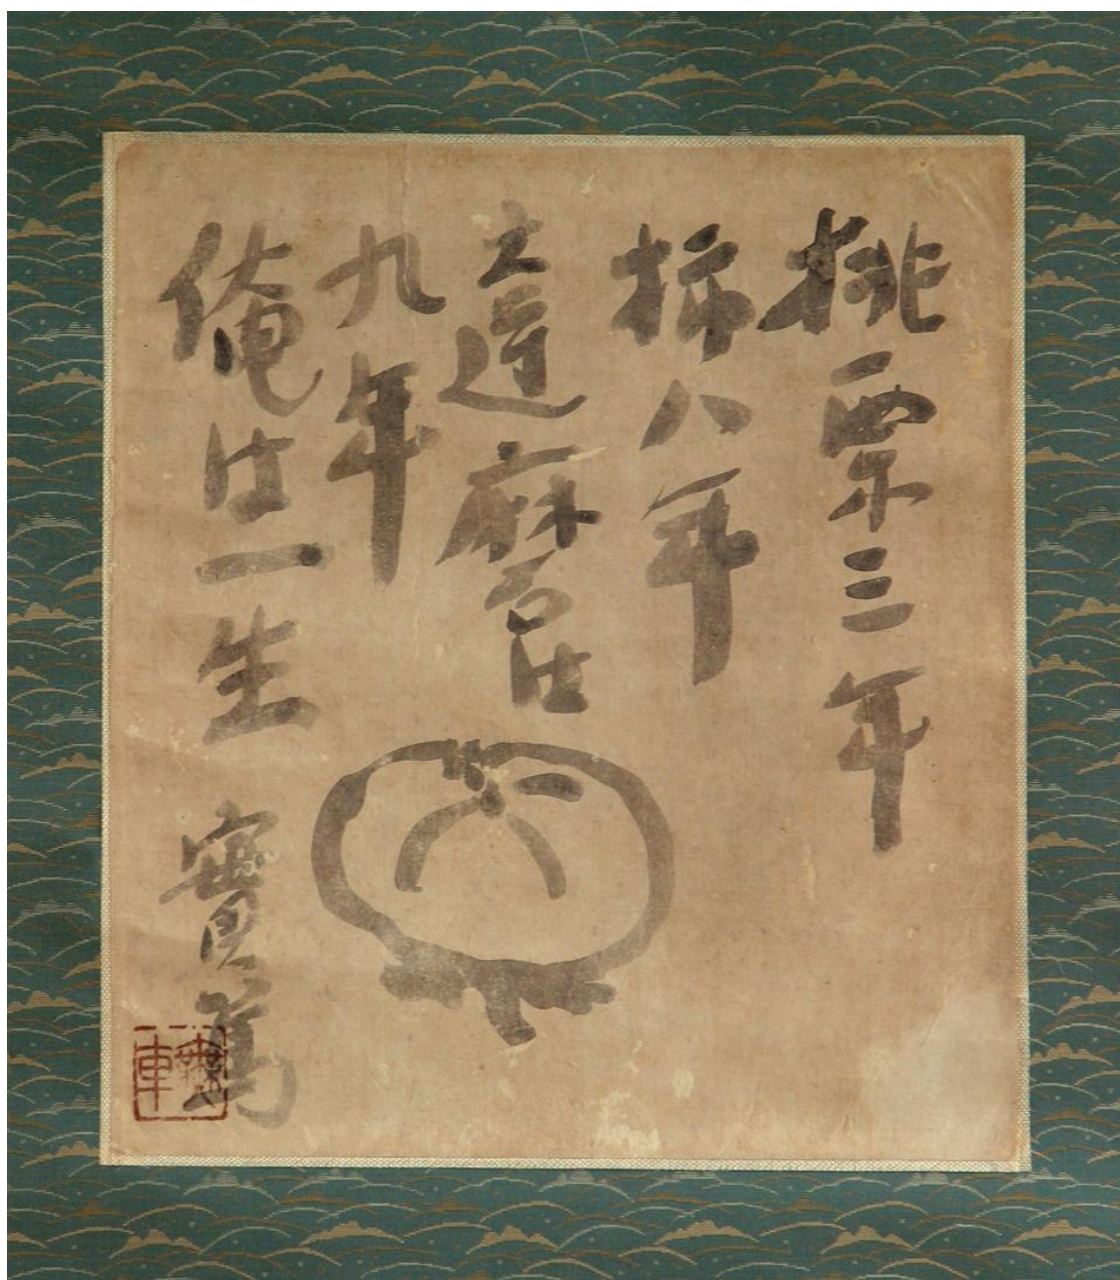 桃栗三年
柿八年
達磨は
九年
俺は一生
實篤
無車